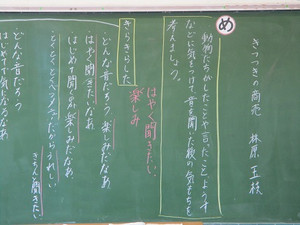 きつつきの商売　林原　玉枝
め
動物たちがしたことや言ったこと、ようす
などに気をつけて、音を聞いた後の気もちを
考えましょう。
はやく聞きたい
楽しみ
きらきらした
・どんな音だろう　楽しみだなあ
・はやく聞きたいなあ
はじめて聞くから楽しみだなあ
きちんと聞きたい
・どんな音だろう
はじめてで気になるなあ